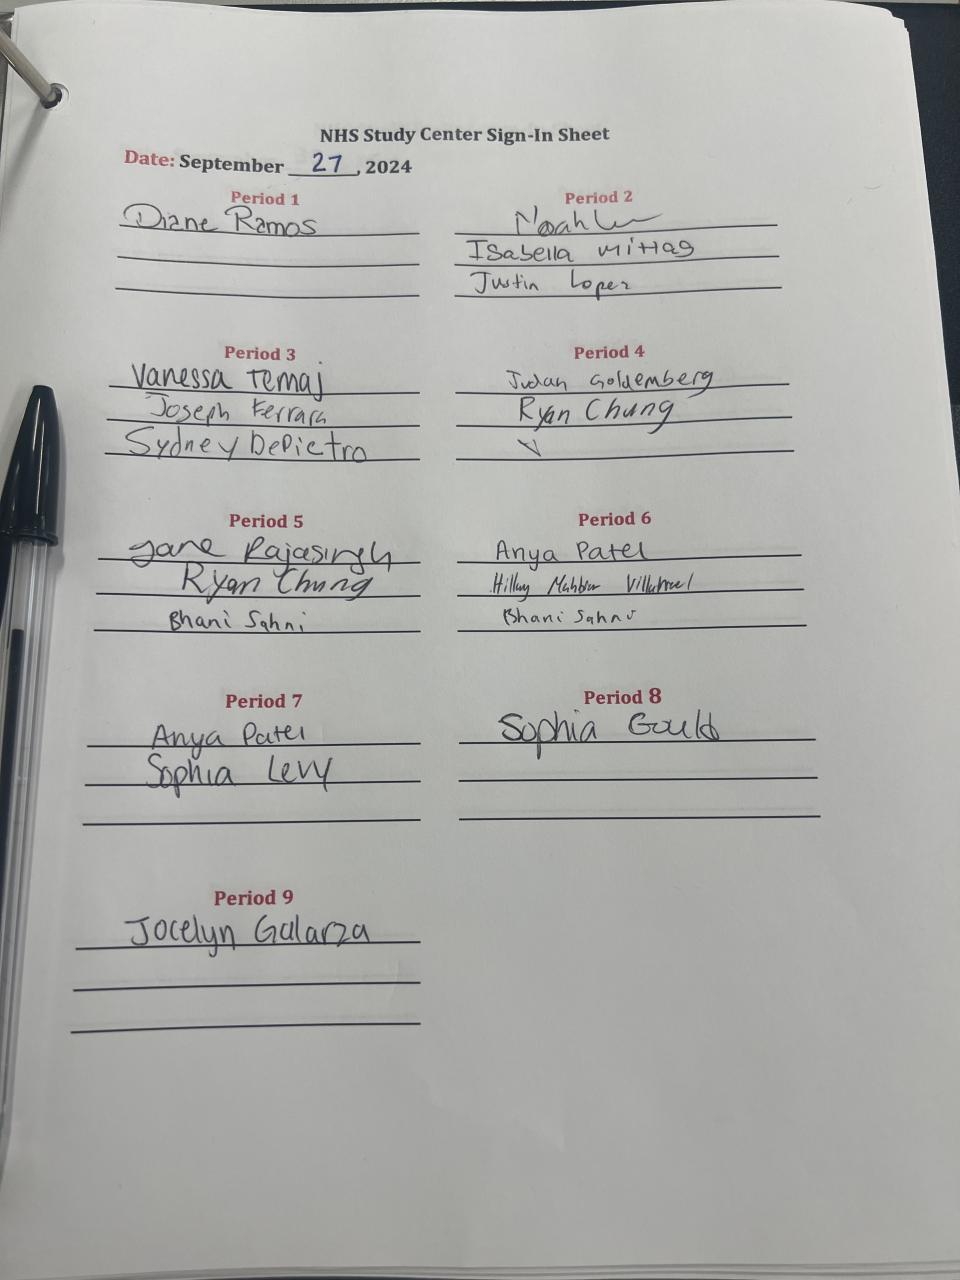 NHS Study Center Sign-In Sheet
Date: September 27, 2024
Period 1
Diane Ramos
Period 2
Noah
Isabella Mittag
Justin Lopez
Period 3
Vanessa Temaj
Joseph Ferrara
Sydney DePietro
Period 4
Judah Goldemberg
Ryan Chung
Period 5
Jane Rajasingh
Ryan Chung
Bhani Sahni
Period 6
Anya Patel
Hillary
Bhani Sahni
Period 7
Anya Patel
Sophia Levy
Period 8
Sophia Gould
Period 9
Jocelyn Galarza